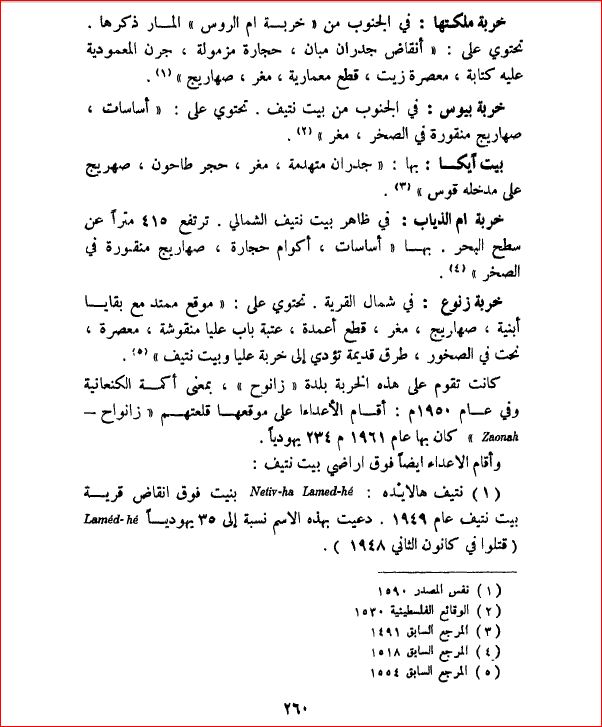 خربة ملكتها : في الجنوب من « خربة ام الروس » المار ذكرها .
تحتوي على : « أنقاض جدران مبان ، حجارة مزمولة ، جرن المعمودية
عليه كتابة ، معصرة زيت ، قطع معمارية ، مغر ، صهاريج » (١) .
خربة بيوس : في الجنوب من بيت نتيف . تحتوي على : « أساسات ،
صهاريج منقورة في الصخر ، مغر » (٢) .
بيت أيكا : بها : « جدران متهدمة ، مغر ، حجر طاحون ، صهريج
على مدخله قوس » (٣) .
خربة ام الذياب : في ظاهر بيت نتيف الشمالي . ترتفع ٤١٥ متراً عن
سطح البحر . بها « أساسات ، أكوام حجارة ، صهاريج منقورة في
الصخر » (٤) .
خربة زنوع : في شمال القرية . تحتوي على : « موقع ممتد مع بقايا
أبنية ، صهاريج ، مغر ، قطع أعمدة ، عتبة باب عليا منقوشة ، معصرة ،
نحت في الصخور ، طرق قديمة تؤدي إلى خربة عليا وبيت نتيف » (٥) .
كانت تقوم على هذه الخربة بلدة « زانوح » ، بمعنى أكمة الكنعانية
وفي عام ١٩٥٠م : أقام الأعداء على موقعها قلعتهم « زانواح –
Zaonah » كان بها عام ١٩٦١ م ٢٣٤ يهودياً .
وأقام الاعداء ايضاً فوق اراضي بيت نتيف :
(١) نتيف هالايْده : Netiv-ha Lamed-hé بنيت فوق انقاض قرية
بيت نتيف عام ١٩٤٩ . دعيت بهذه الاسم نسبة إلى ٣٥ يهودياً Laméd-hé
( قتلوا في كانون الثاني ١٩٤٨ ) .
(١) نفس المصدر ١٥٩٠
(٢) الوقائع الفلسطينية ١٥٣٠
(٣) المرجع السابق ١٤٩١
(٤) المرجع السابق ١٥١٨
(٥) المرجع السابق ١٥٥٤
٢٦٠